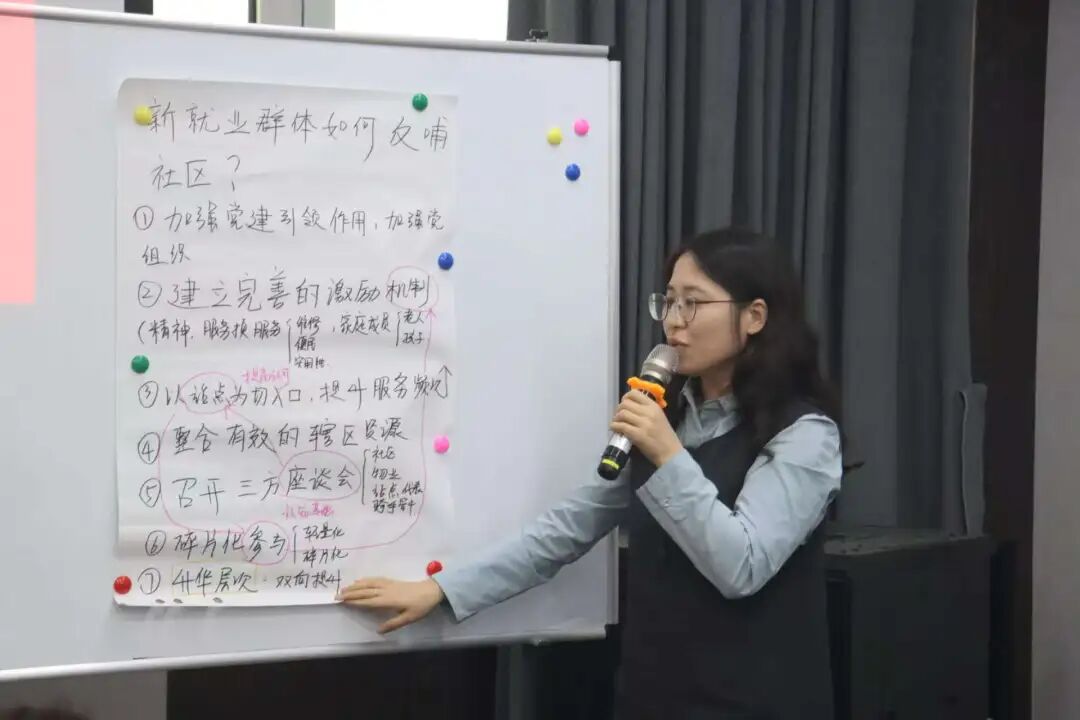 新就业群体如何反哺
社区？
① 加强党建引领作用，加强党
组织
② 建立完善的激励机制
(精神、服务换服务 维修，家庭成员 老人
便民 孩子
提高认可
③ 以站点为切入口，提升服务频次
④ 整合有效的辖区资源
⑤ 召开三方座谈会 社区
物业
站点代表
骑手骨干
⑥ 碎片化参与 轻量化
碎片化
⑦ 升华层次：双向提升